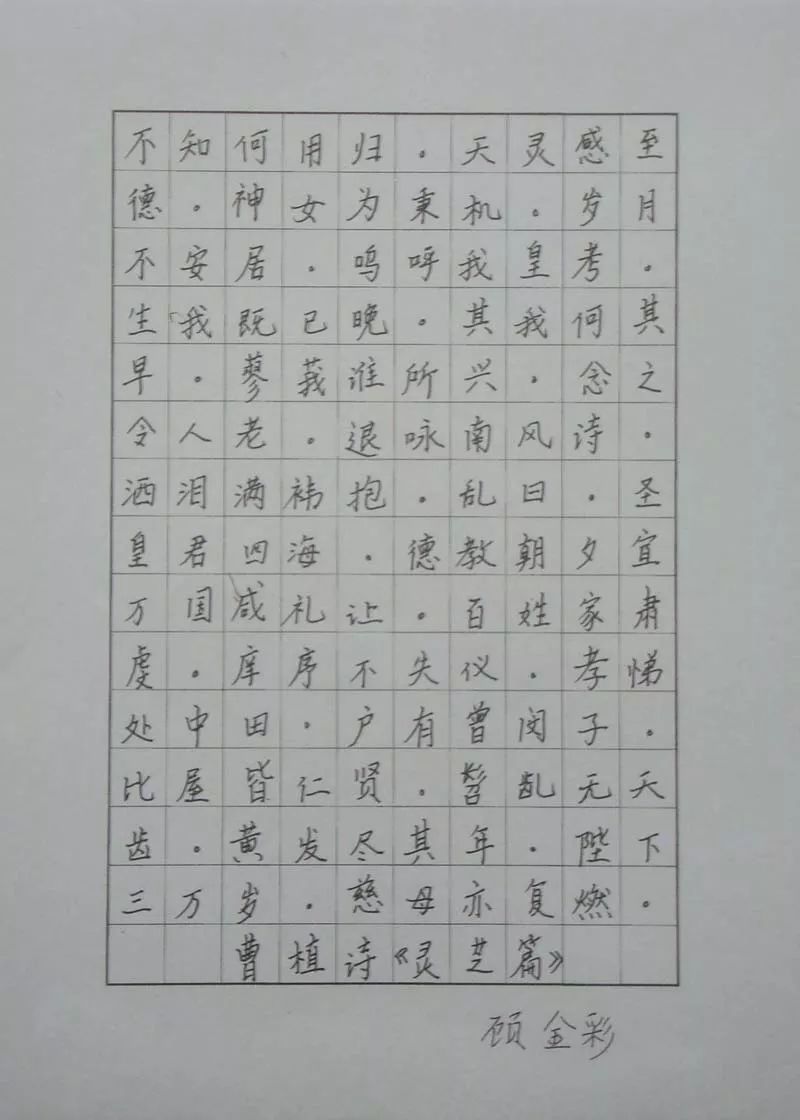 不知何用归。天灵感至
德。神女为秉机。岁月
不安居。呜呼我皇考。
生我既已晚。其我何其
早。蓼莪谁所兴。念之
令人老。退咏南风诗。
洒泪满袆抱。乱曰。圣
皇君四海。德教朝夕宣
万国咸礼让。百姓家肃
虔。庠序不失仪。孝悌
处中田。户有曾闵子。
比屋皆仁贤。髫龀无夭
齿。黄发尽其年。陛下
三万岁。慈母亦复燃。
曹植诗《灵芝篇》
顾金彩